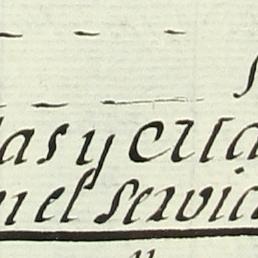 las y cria
n el servic